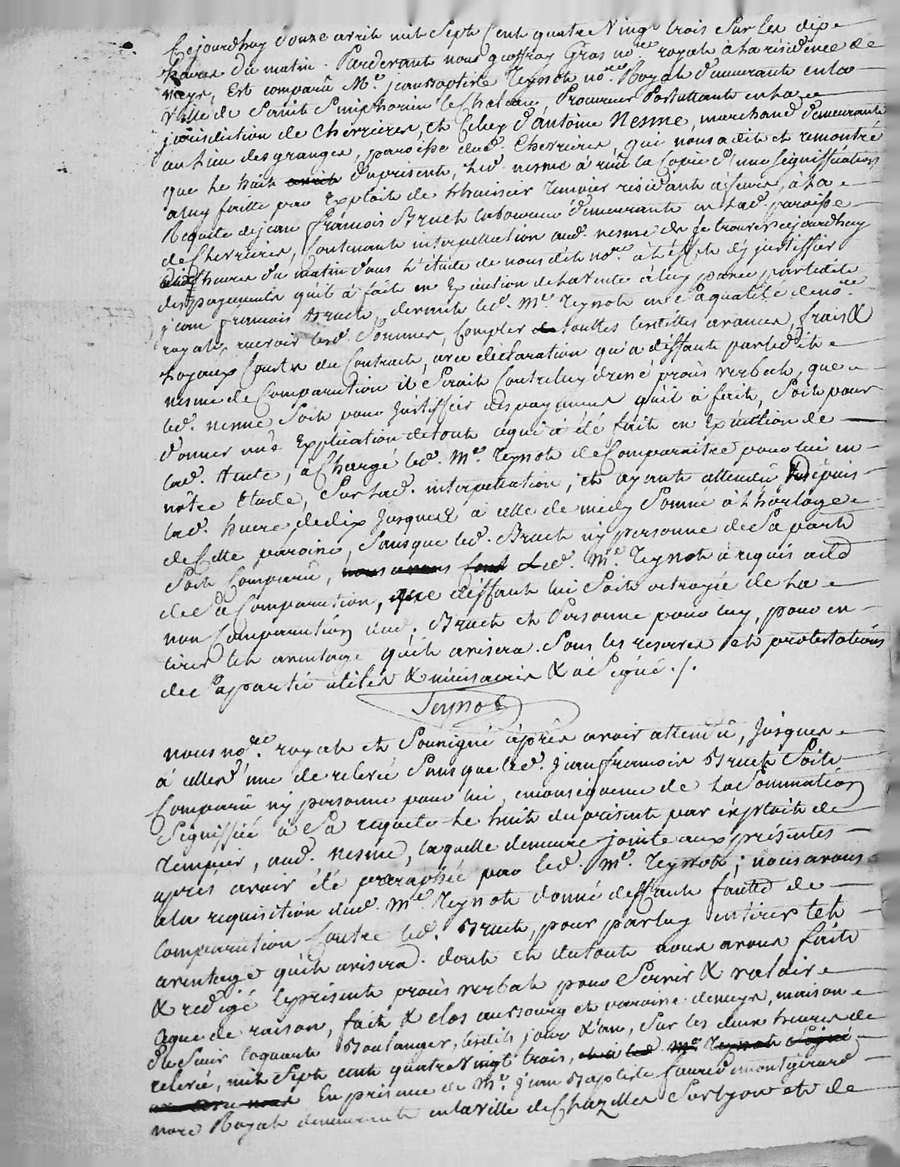 Cejourdhuy douze avril mil Sept Cent quatre Vingt trois Sur les dix
heures du matin. Pardevant nous geoffray Gras nore royal à la résidence de
meys, Est comparû Me. jean Baptiste Teynot nore. Royal demeurante en la
Ville de Saint Simphorien le Chateau, Procureur Postullante en la
jurisdiction de Cherrieres, et Celuy d'antoine Nesme, marchand demeurante
au lieu des granges, paroisse dud. Cherrieres, qui nous a dit et remontré
que le huit duprésente, led. nesme à reçu la Copie d'une Signiffication
à luy faitte par Exploit de huissier Tempier residante à , à la
Requête de jean françois Bruel laboureur demeurante en lad. paroisse
de Cherrieres, Contenante interpellation aud. nesme de se trouver cejourdhuy
heures du matin dans L'étude de nous dit nore. à leffet d'y justiffier
des payements quil à fait en Execution de la vente à luy passée par ledit
jean françois Bruel, devant led. Me. Teynot en Sa qualité de nore.
royal, recevoir led. Sommes, Compter touttes lesdittes avances, frais &
Loyaux Cousts du Contract, avec déclaration qu'à deffaute par led. de
nesme de Comparution il Seroit Contre luy dressé procès verbal, que
led. nesme Soit pour justiffier des payemens quil à fait, Soit pour
donner une Explication de tout ce qui à été fait en Exécution de
lad. Acte, à Chargé led. Me. Teynot de Comparoitre pour lui en
nôtre Etude, Sur lad. interpellation, et ayant attendu depuis
lad. heure de dix jusques à celle de midy Sonné à lhorloge
de Cette paroisse, Sans que led. Bruel ny personne de Sa part
Soit Comparû, Led. Me. Teynot à requis acte
de Sa Comparution, deffaut lui Soit octroyée de la
non Comparution dud. Bruel et Personne pour luy, pour en
tirer tel avantage quil avisera Sous les reserves et protestations
de Sa partie utiles & nécessaires & à Signé ./.
Teynot
Nous nore. royal et Soussigné après avoir attendû, jusques
à celle d'une de relevé Sans que led. jean francois Bruel Soit
Comparû ny personne pour lui, en consequence de la Sommation
Signiffiée à Sa requete le huit du présent par éxploit de
Tempier, aud. nesme, laquelle demeure jointe aux présentes
après avoir été paraphée par led. Me. Teynot; nous avons
à la requisition dud. Me. Teynot donné deffaute faute de
Comparution Contre led. Bruel, pour par luy en tirer tel
avantage quil avisera. dont et du tout nous avons fait
& redigé le présent procès verbal pour Servir & valoir
que de raison, fait & clos au Bourg et paroisse de meys, maison
du Sieur Boulanger, lesdits jour & an, Sur les deux heures de
relevé, mil Sept cent quatre Vingt trois,
En présence de Me. jean Baptiste faure montgirard
nore Royal demeurante en la ville de Chazelles Sur lyon et de